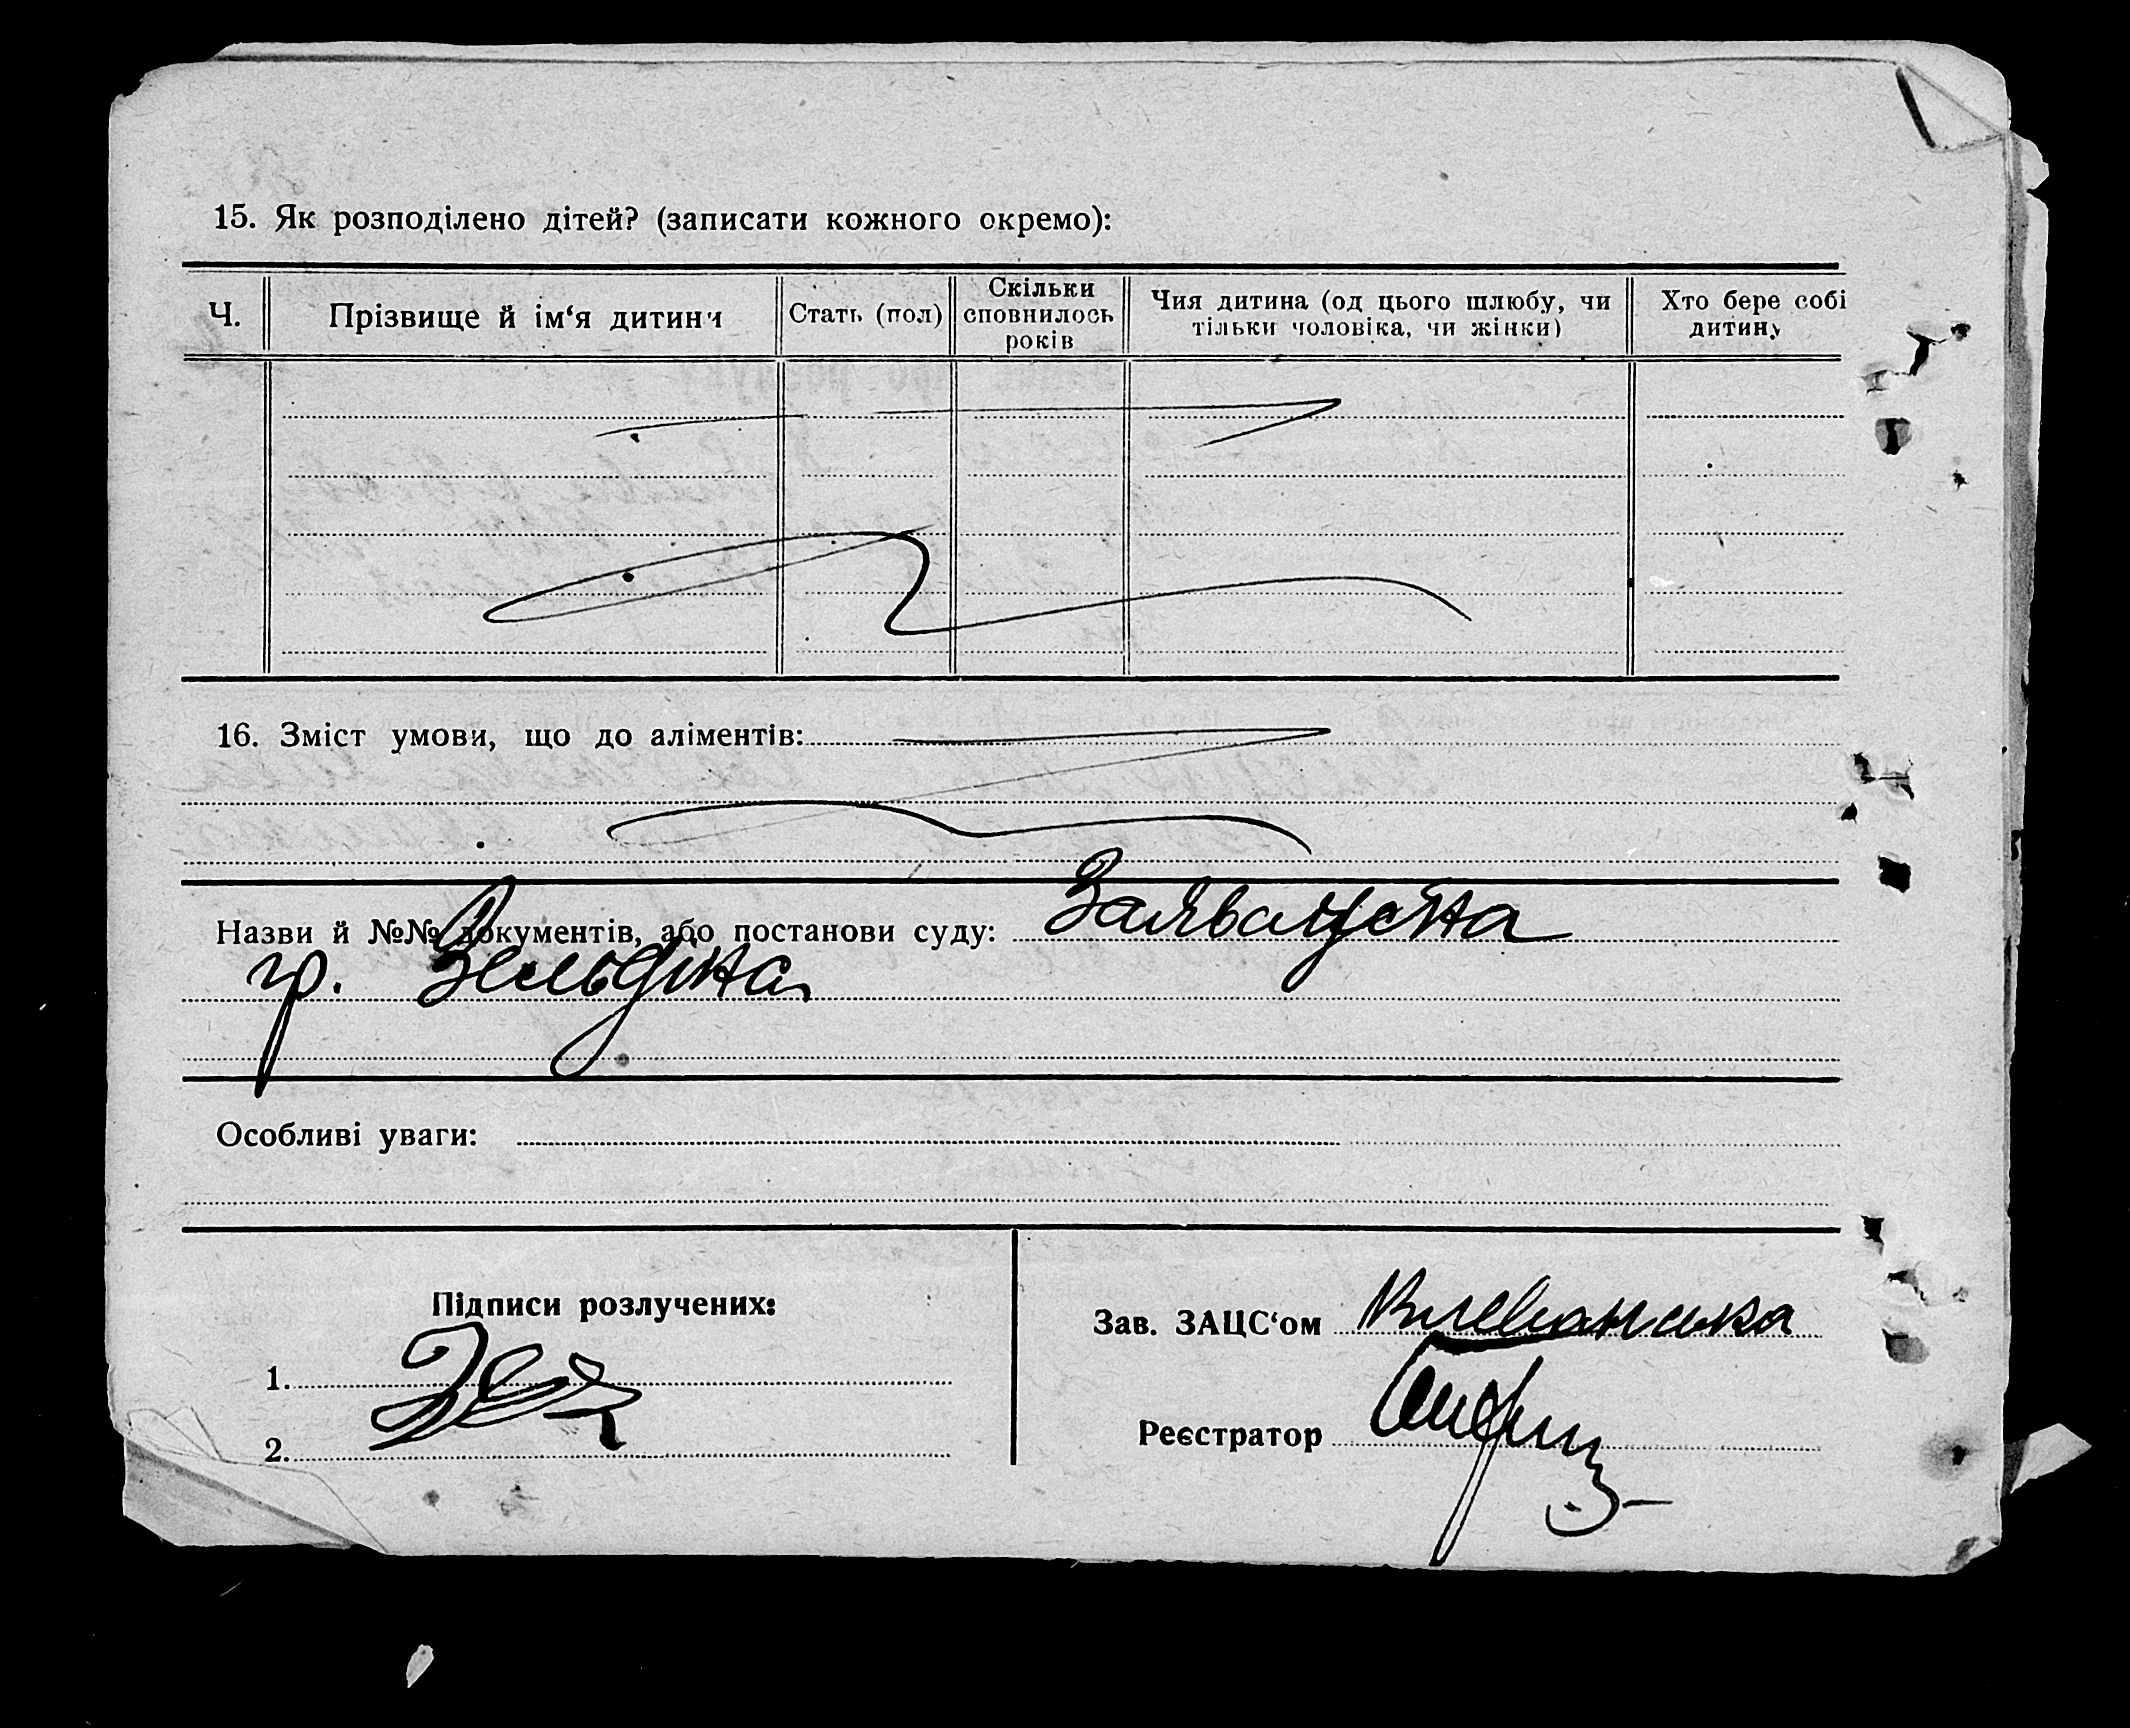 15. Як розподілено дітей? (записати кожного окремо):
Ч. Прізвище й ім‘я дитини Стать (пол) Скільки сповнилось років Чия дитина (од цього шлюбу, чи тільки чоловіка, чи жінки) Хто бере собі дитину
16. Зміст умови, що до аліментів:
Назви й №№ документів, або постанови суду: Заява устна
гр. Зельдіна
Особливі уваги:
Підписи розлучених:
1.
2.
Зав. ЗАЦС‘ом
Реєстратор